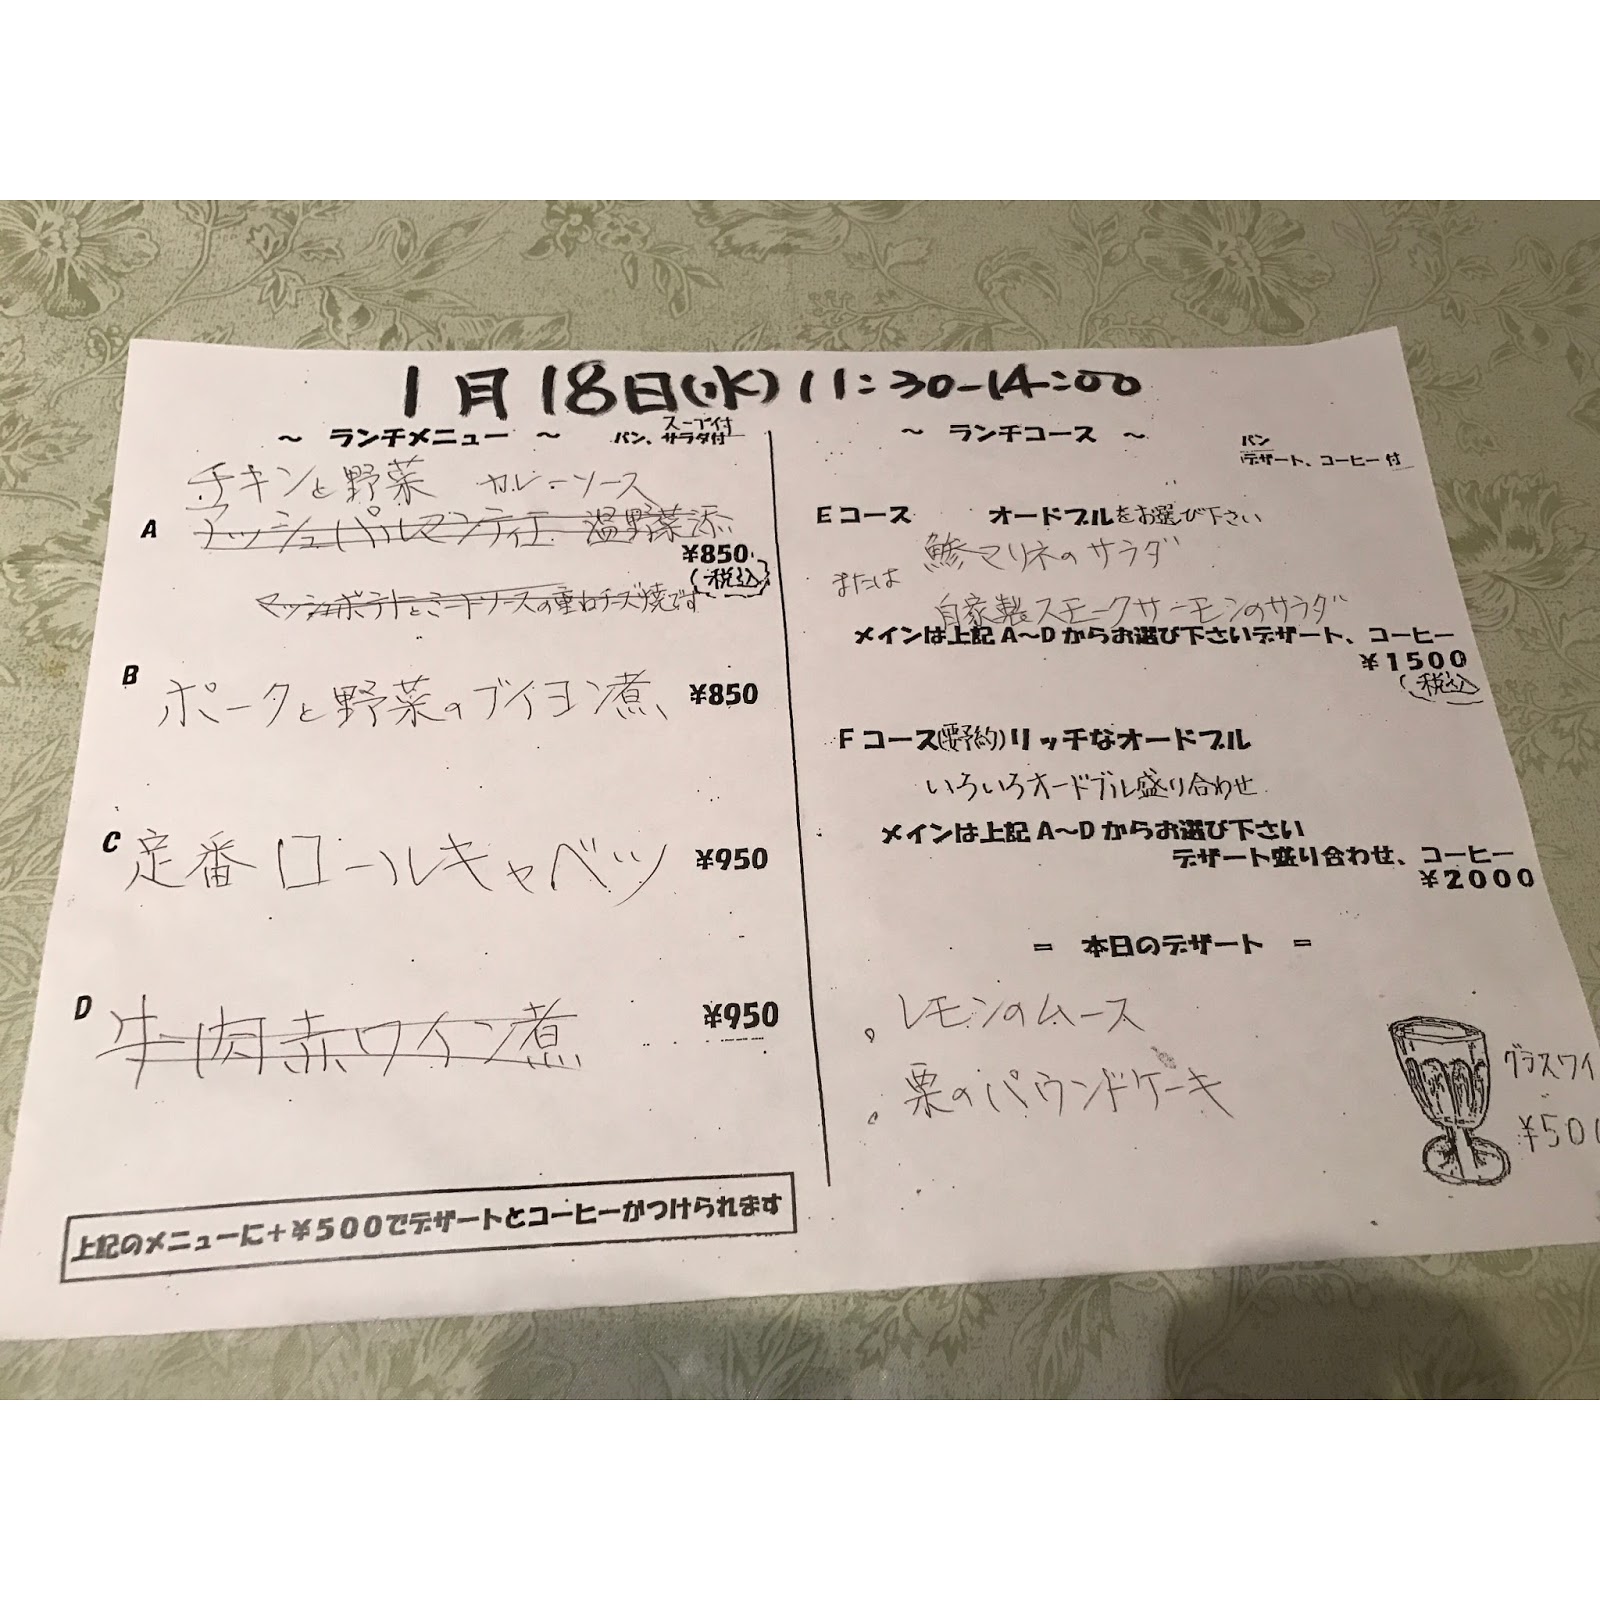 1月18日(水) 11:30-14:00
～ ランチメニュー ～
スープ付
パン、サラダ付
チキンと野菜 カレーソース
A アッシュパルマンティエ 温野菜添
¥850
(税込)
マッシュポテトとミートソースの重ねチーズ焼です
B ポークと野菜のブイヨン煮 ¥850
C 定番ロールキャベツ ¥950
D 牛肉赤ワイン煮 ¥950
上記のメニューに+¥500でデザートとコーヒーがつけられます
～ ランチコース ～
パン
デザート、コーヒー付
Eコース オードブルをお選び下さい
鯵マリネのサラダ
または
自家製スモークサーモンのサラダ
メインは上記A～Dからお選び下さいデザート、コーヒー
¥1500
(税込)
Fコース(要予約)リッチなオードブル
いろいろオードブル盛り合わせ
メインは上記A～Dからお選び下さい
デザート盛り合わせ、コーヒー
¥2000
= 本日のデザート =
。レモンのムース
。栗のパウンドケーキ
グラスワイ
¥500